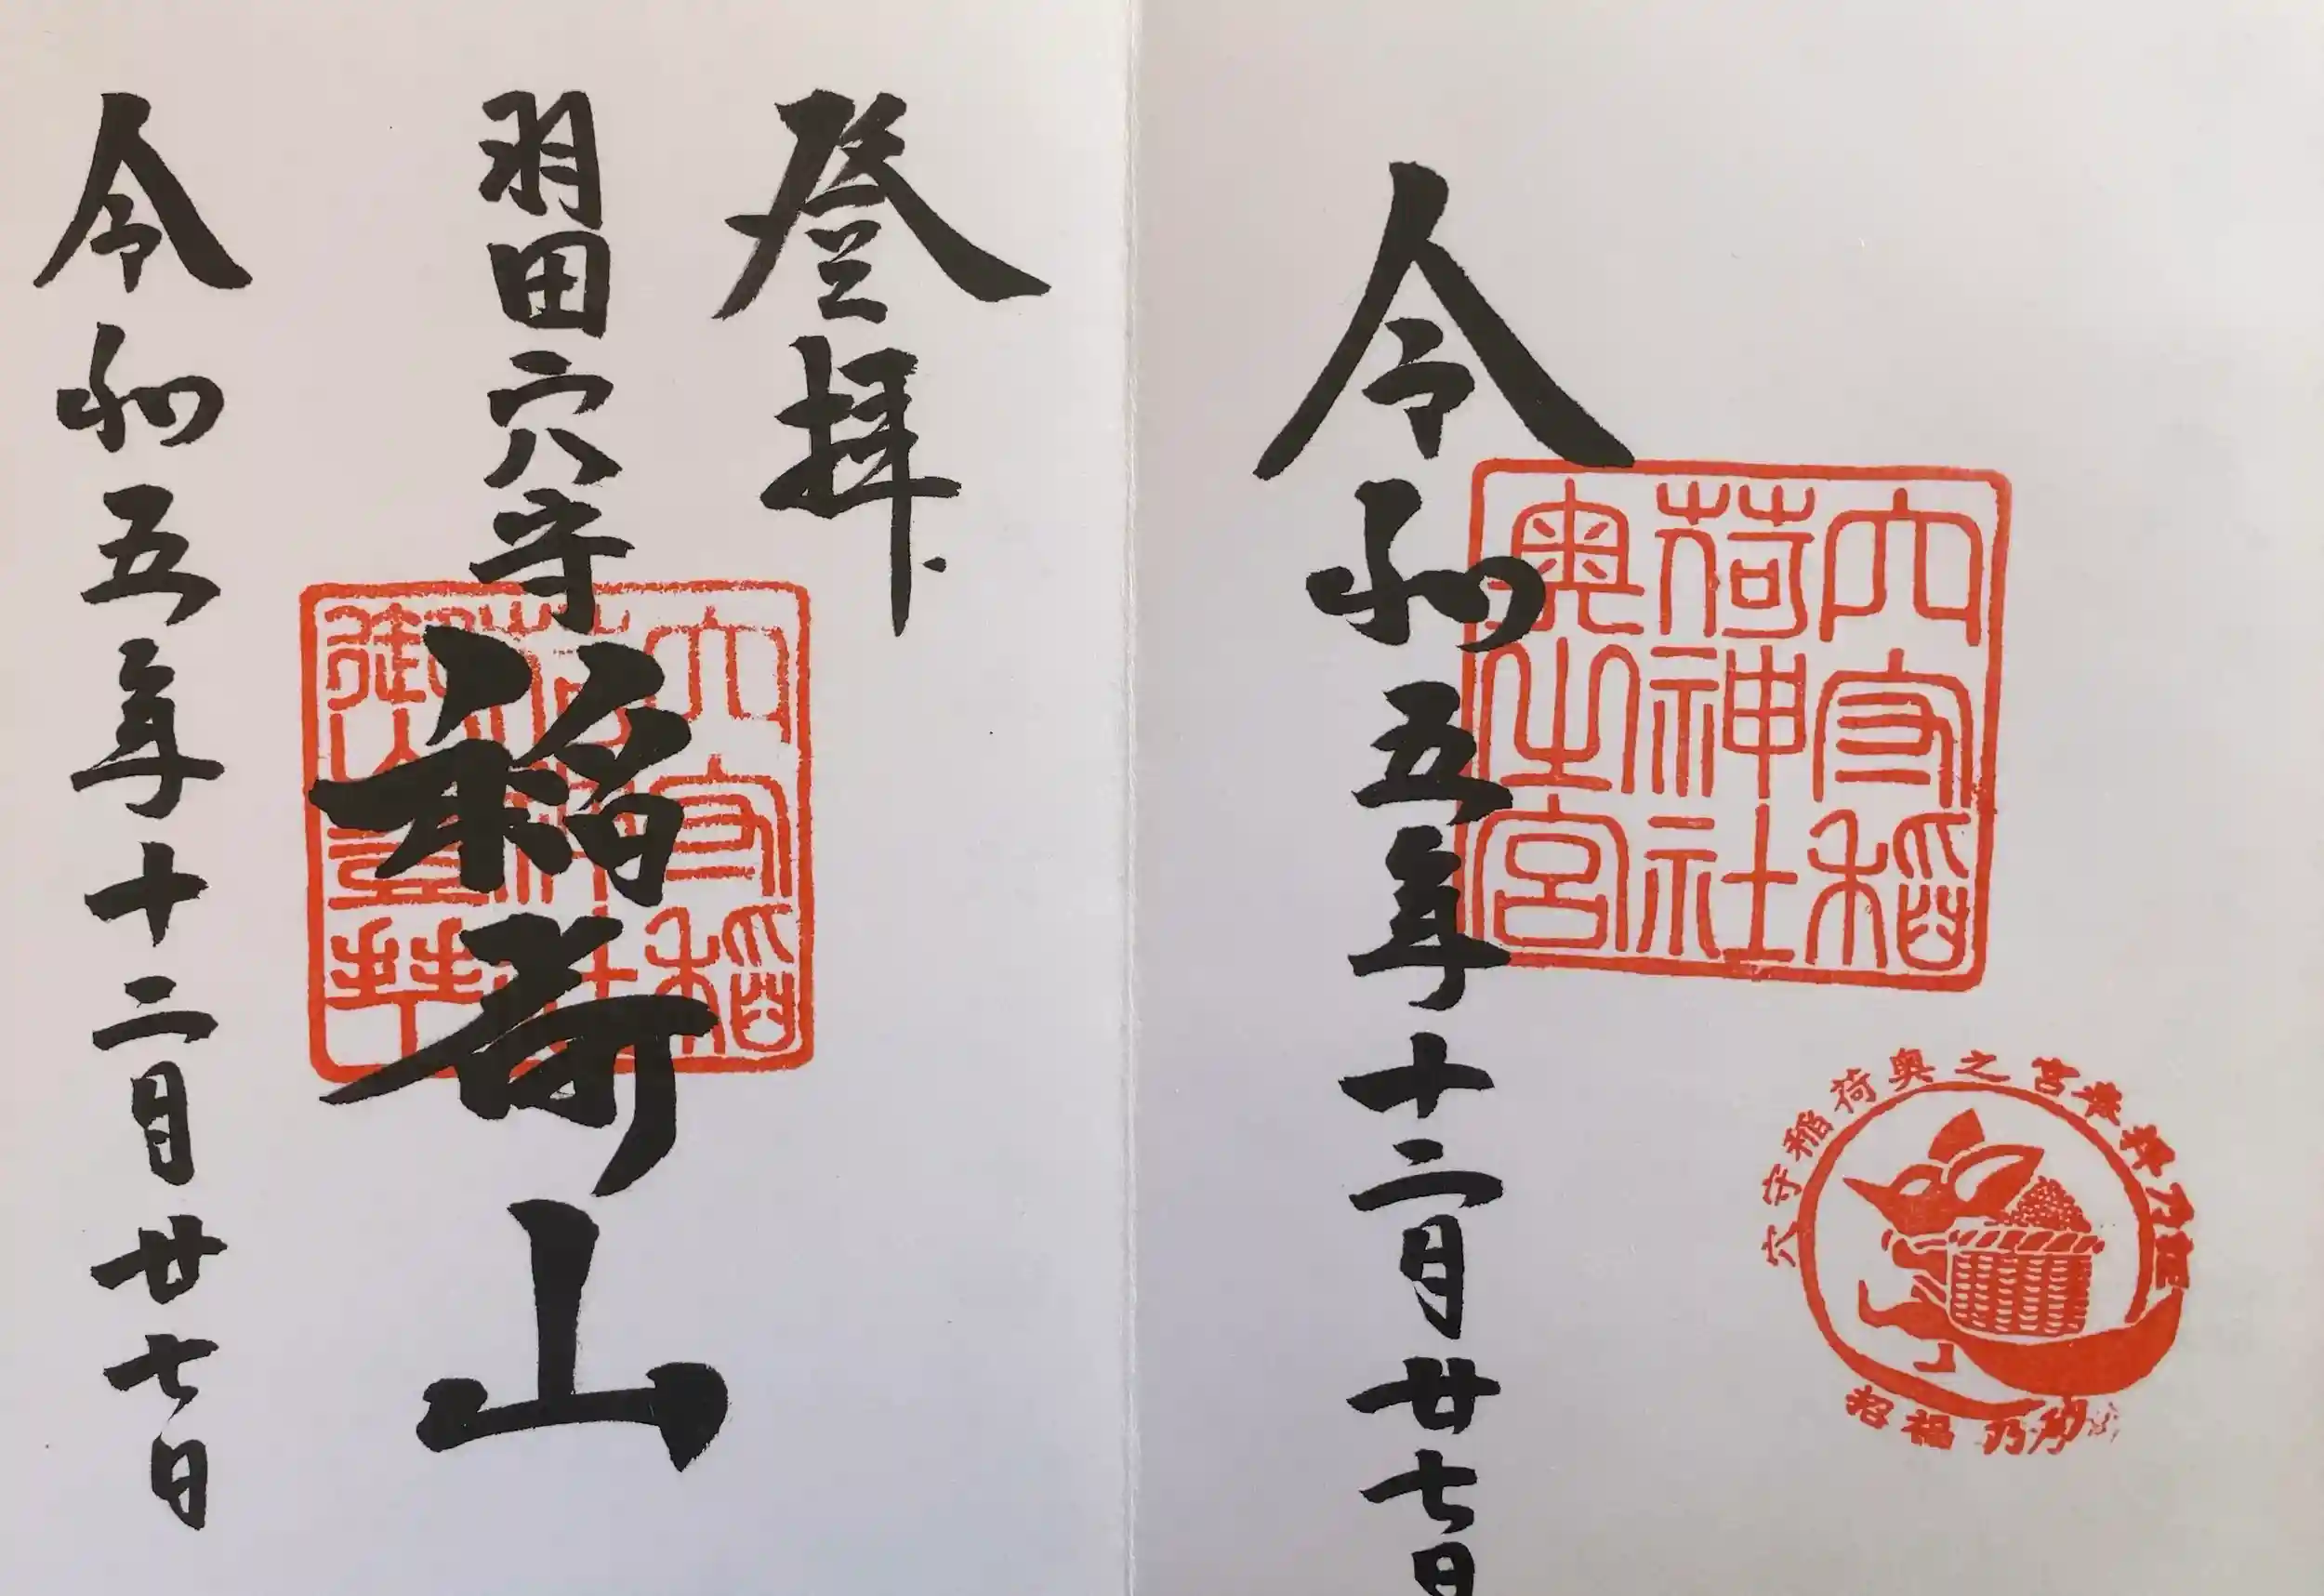 穴守稲
荷神社
奥之宮
穴守稲荷奥之宮
招福乃砂
令和五年十二月廿七日
登拝
羽田穴守稲荷山
穴守稲
荷神社
御山登拝
令和五年十二月廿七日